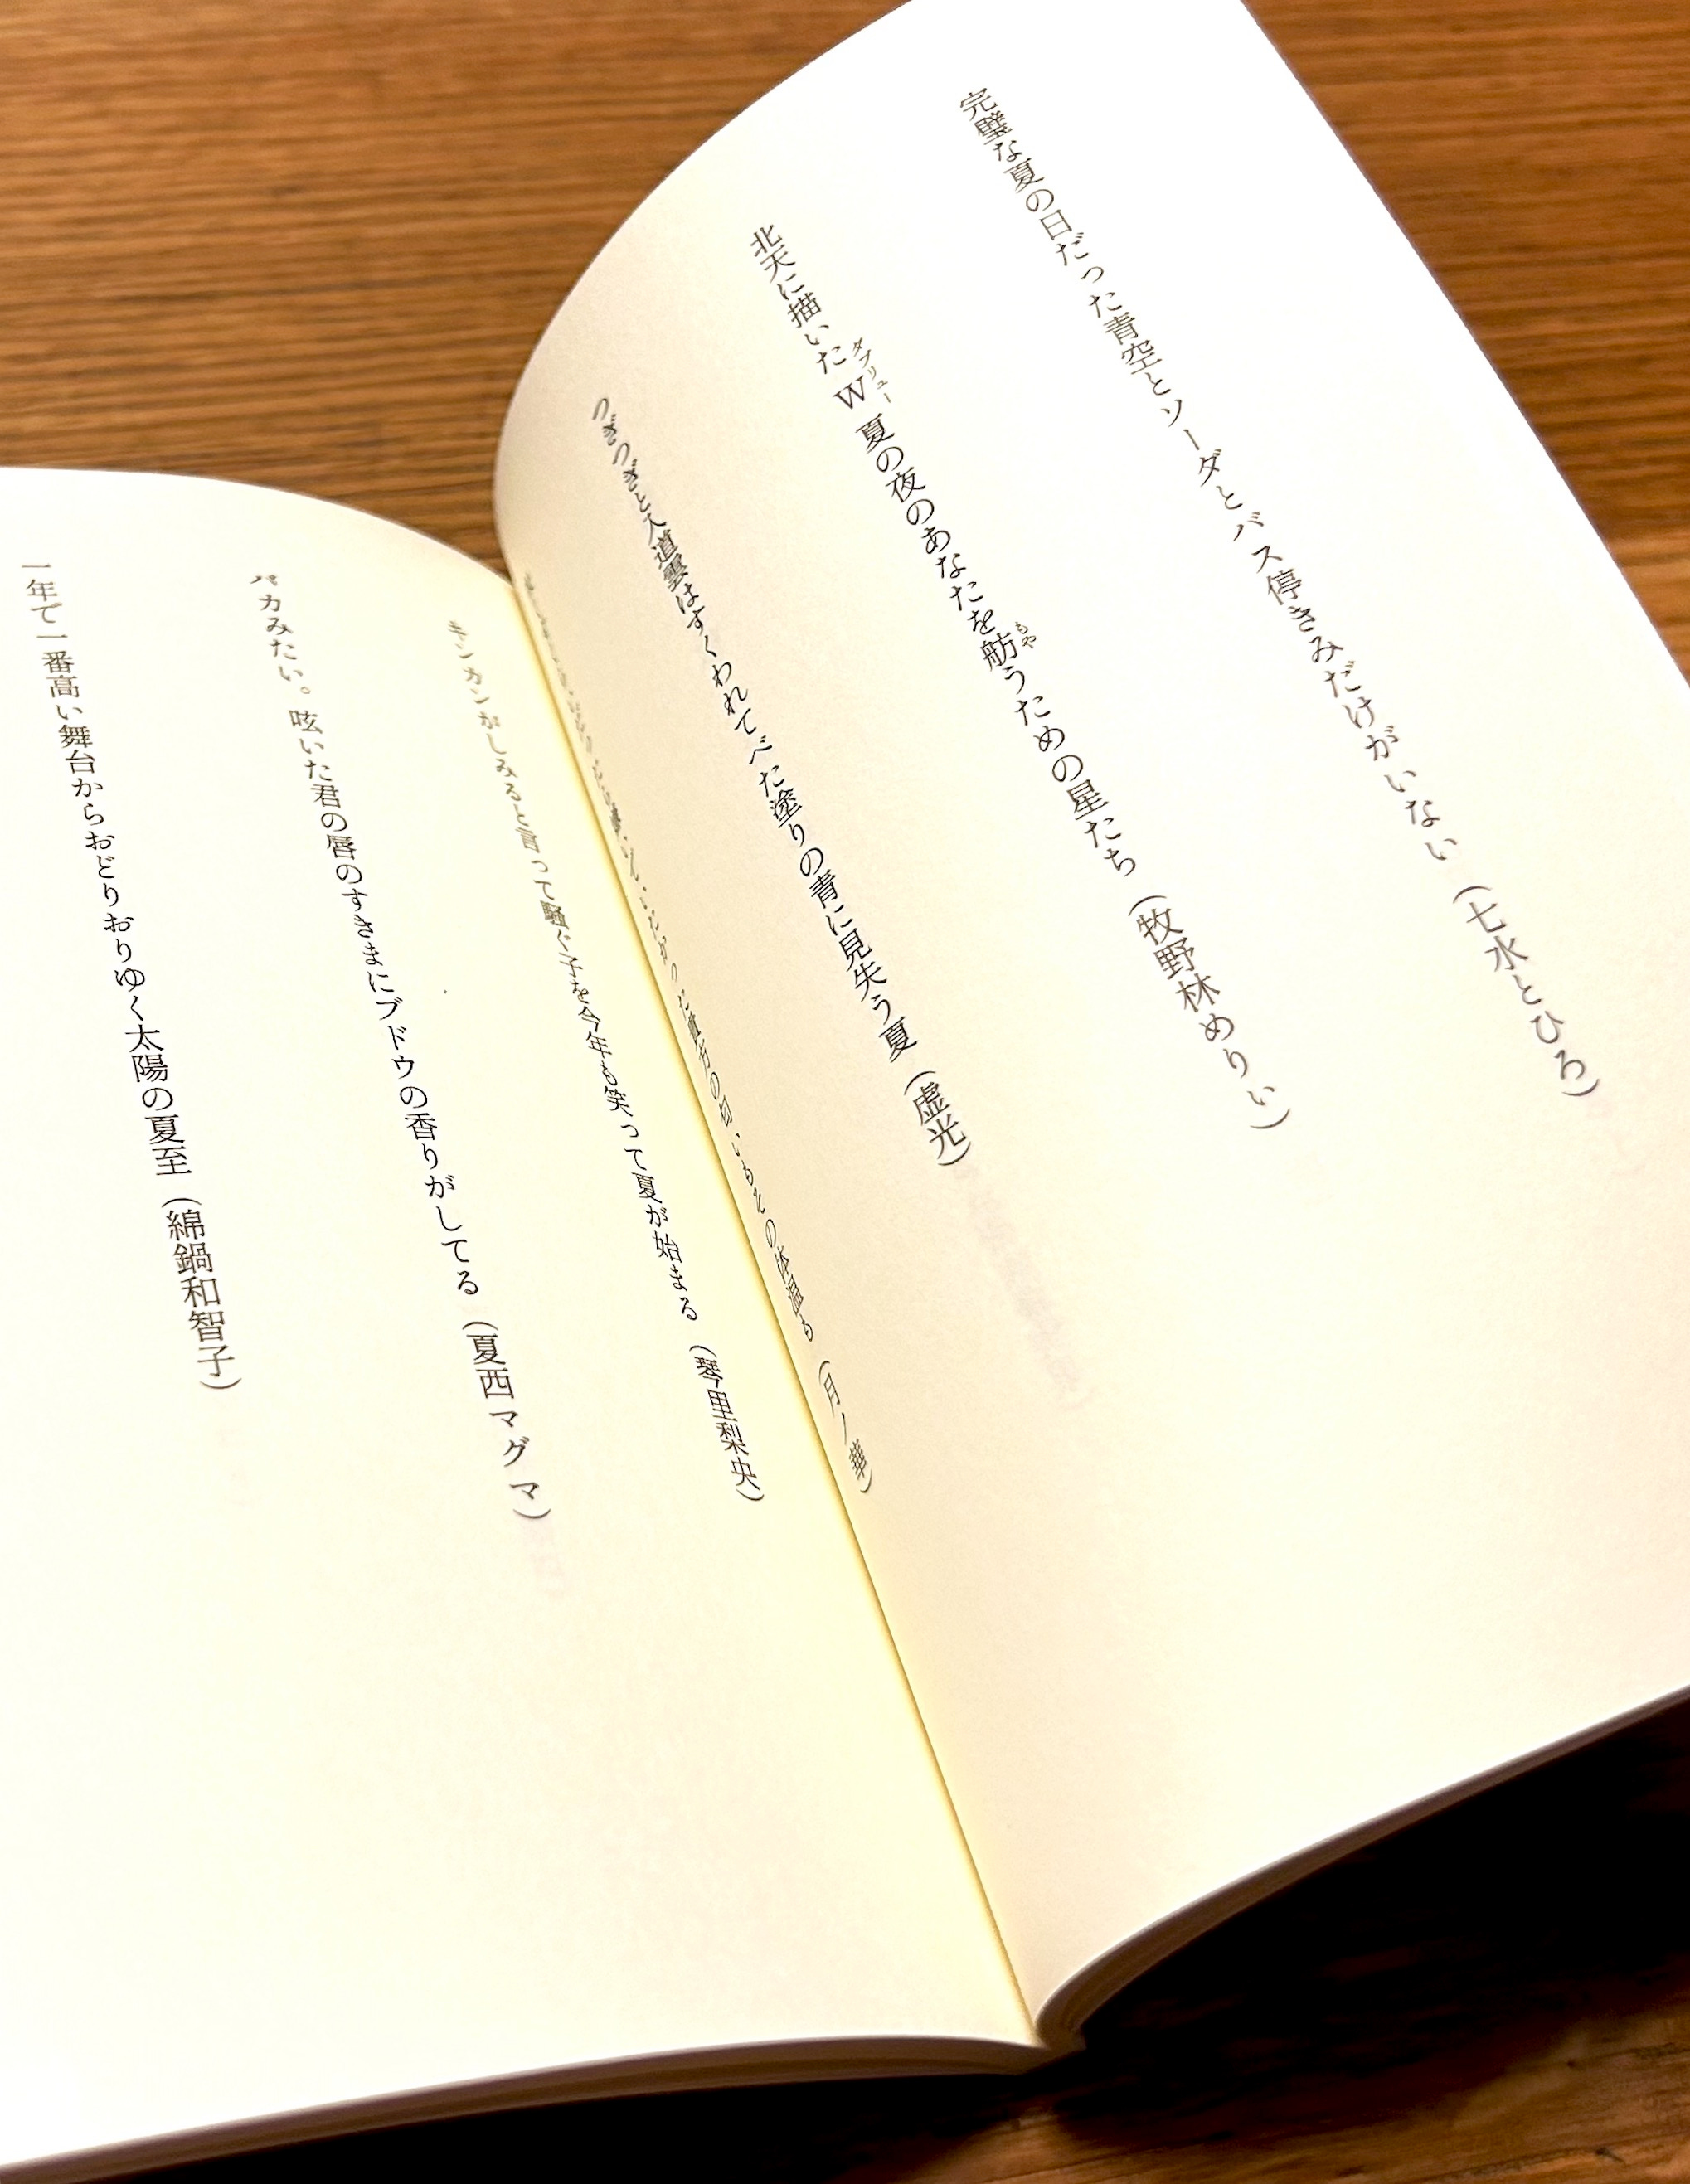 完璧な夏の日だった青空とソーダとバス停きみだけがいない（七水とひろ）
北天に描いたW夏の夜のあなたを舫うための星たち（牧野林めりい）
ダブリュー
もや
つぎつぎと入道雲はすくわれてべた塗りの青に見失う夏（虚光）
の匂いもその体温も（月ノ華）
キンカンがしみると言って騒ぐ子を今年も笑って夏が始まる（琴里梨央）
バカみたい。呟いた君の唇のすきまにブドウの香りがしてる（夏西マグマ）
一年で一番高い舞台からおどりおりゆく太陽の夏至（綿鍋和智子）